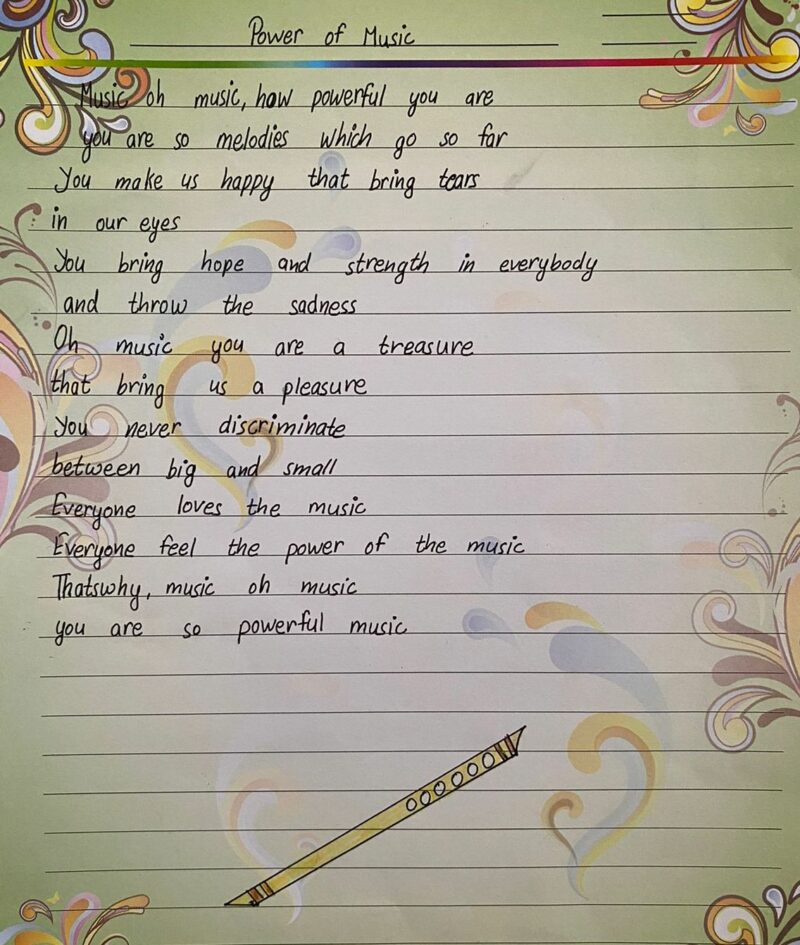 Power of Music
Music oh music, how powerful you are
you are so melodies which go so far
You make us happy that bring tears
in our eyes
You bring hope and strength in everybody
and throw the sadness
Oh music you are a treasure
that bring us a pleasure
You never discriminate
between big and small
Everyone loves the music
Everyone feel the power of the music
Thatswhy, music oh music
you are so powerful music